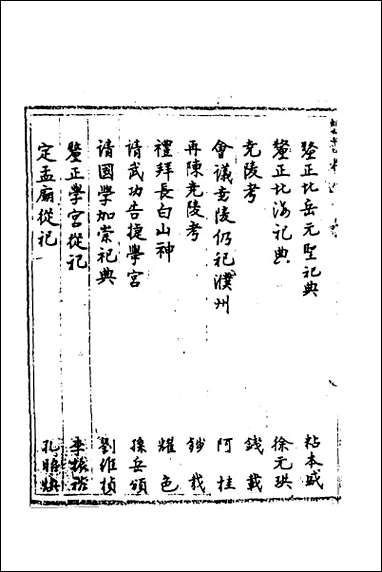 釐正北岳元聖祀典 粘本盛
釐正北海祀典 徐元珙
堯陵考 錢載
會議堯陵仍祀濮州 阿桂
再陳堯陵考 錢載
禮拜長白山神 耀色
請武功告捷學宮 孫岳頒
請國學加崇祀典 劉維楨
釐正學宮從祀 李振裕
定孟廟從祀 孔昭煥